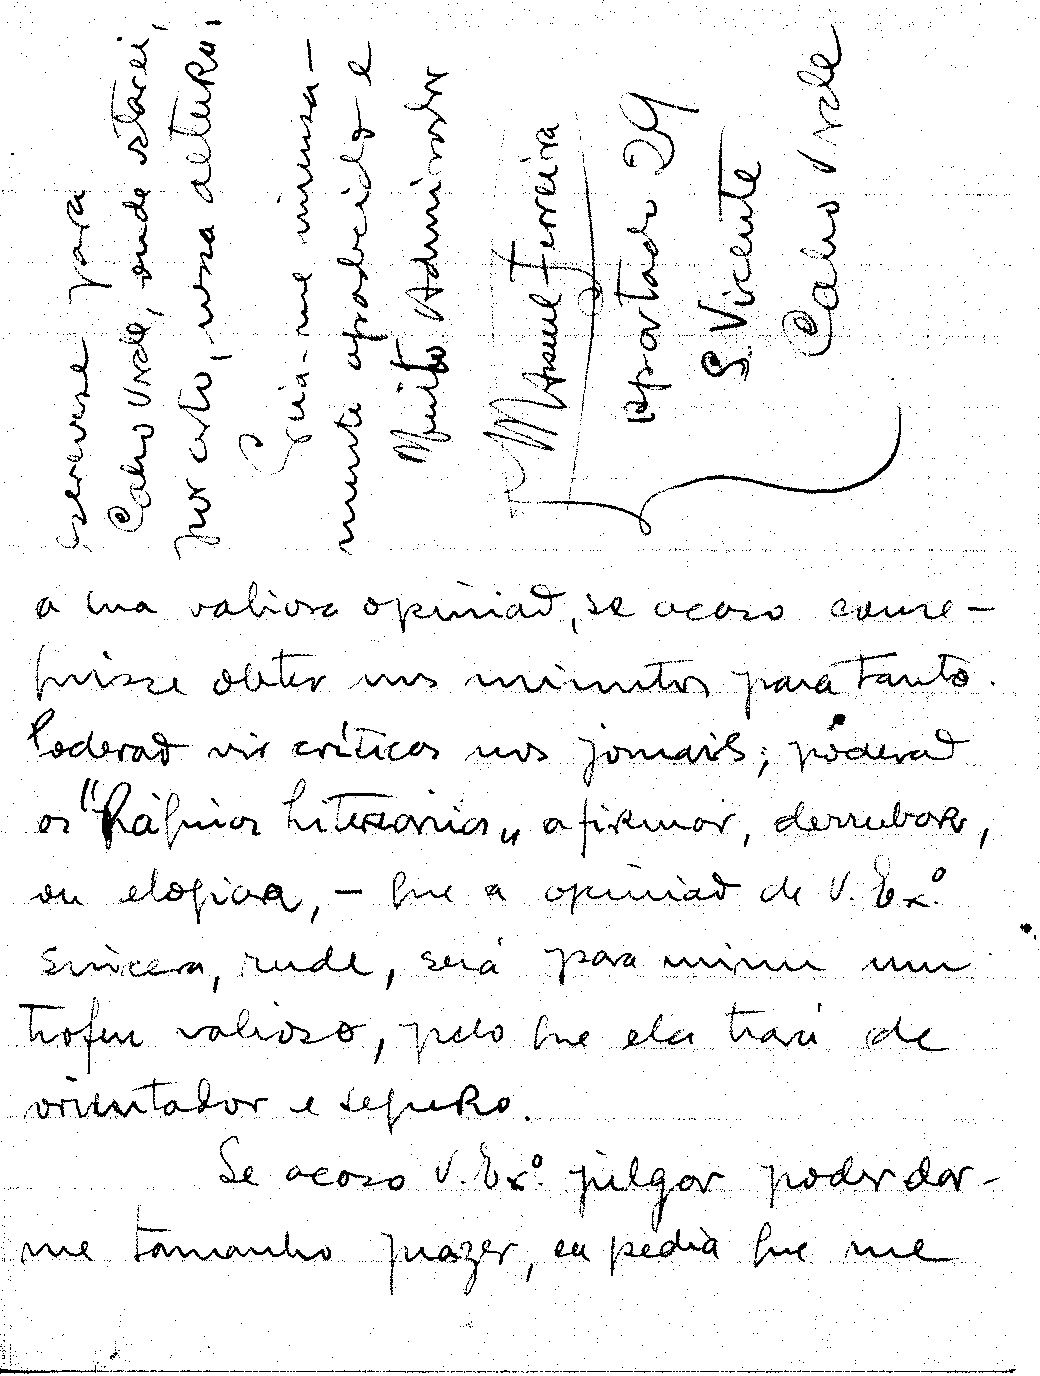 a sua valiosa opinião, se acaso conse-
guisse obter uns minutos para tanto.
Poderão vir críticas nos jornais; poderão
as "Páginas Literárias" afirmar, derrubar,
ou elogiar, - que a opinião de V. Ex.ª
sincera, rude, será para mim um
trofeu valioso, pelo que ela trará de
orientador e seguro.
Se acaso V. Ex.ª julgar poder dar-
me tamanho prazer, eu pedia que me
escrevesse para
Cabo Verde, onde estarei,
por certo, nessa altura.
Seria-me imensa-
mente agradecido e
Muito Admirador
Manuel Ferreira
Apartado 29
S. Vicente
Cabo Verde